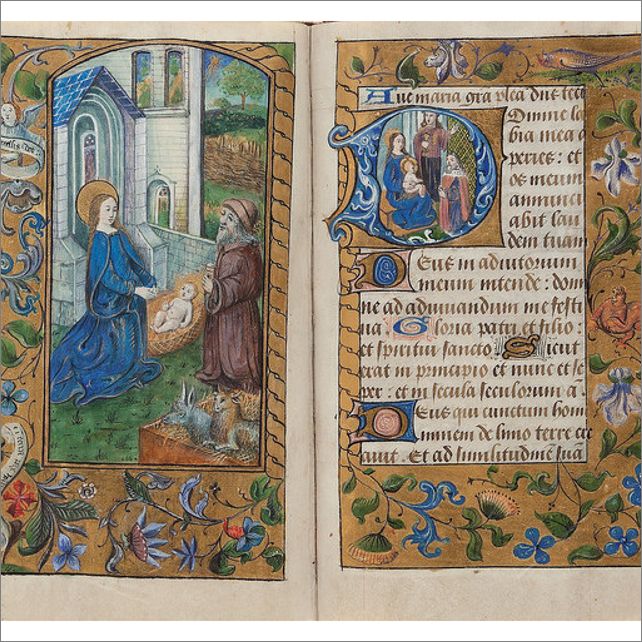 Aue maria gra plea dns tecu
Domine la
bia mea a
peries : et
os meum
annunci
abit lau
dem tuam
Deus in adiutorium
meum intende : dom
ne ad adiuuandum me festi
na Gloria patri et filio :
et spiritui sancto Sicut
erat in principio et nunc et se
per : et in secula seculorum a
Deus qui cunctum hom
de limo terre cre
auit . Et ad similitudinem sua